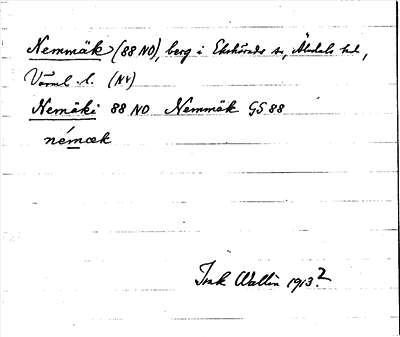 Nemmäk (88 NO), berg i Ekshärads sn, Älvdals hd,
Värml. l. (NV)
Nemäki 88 NO Nemmäk GS 88
némæk
Wallin 1913?